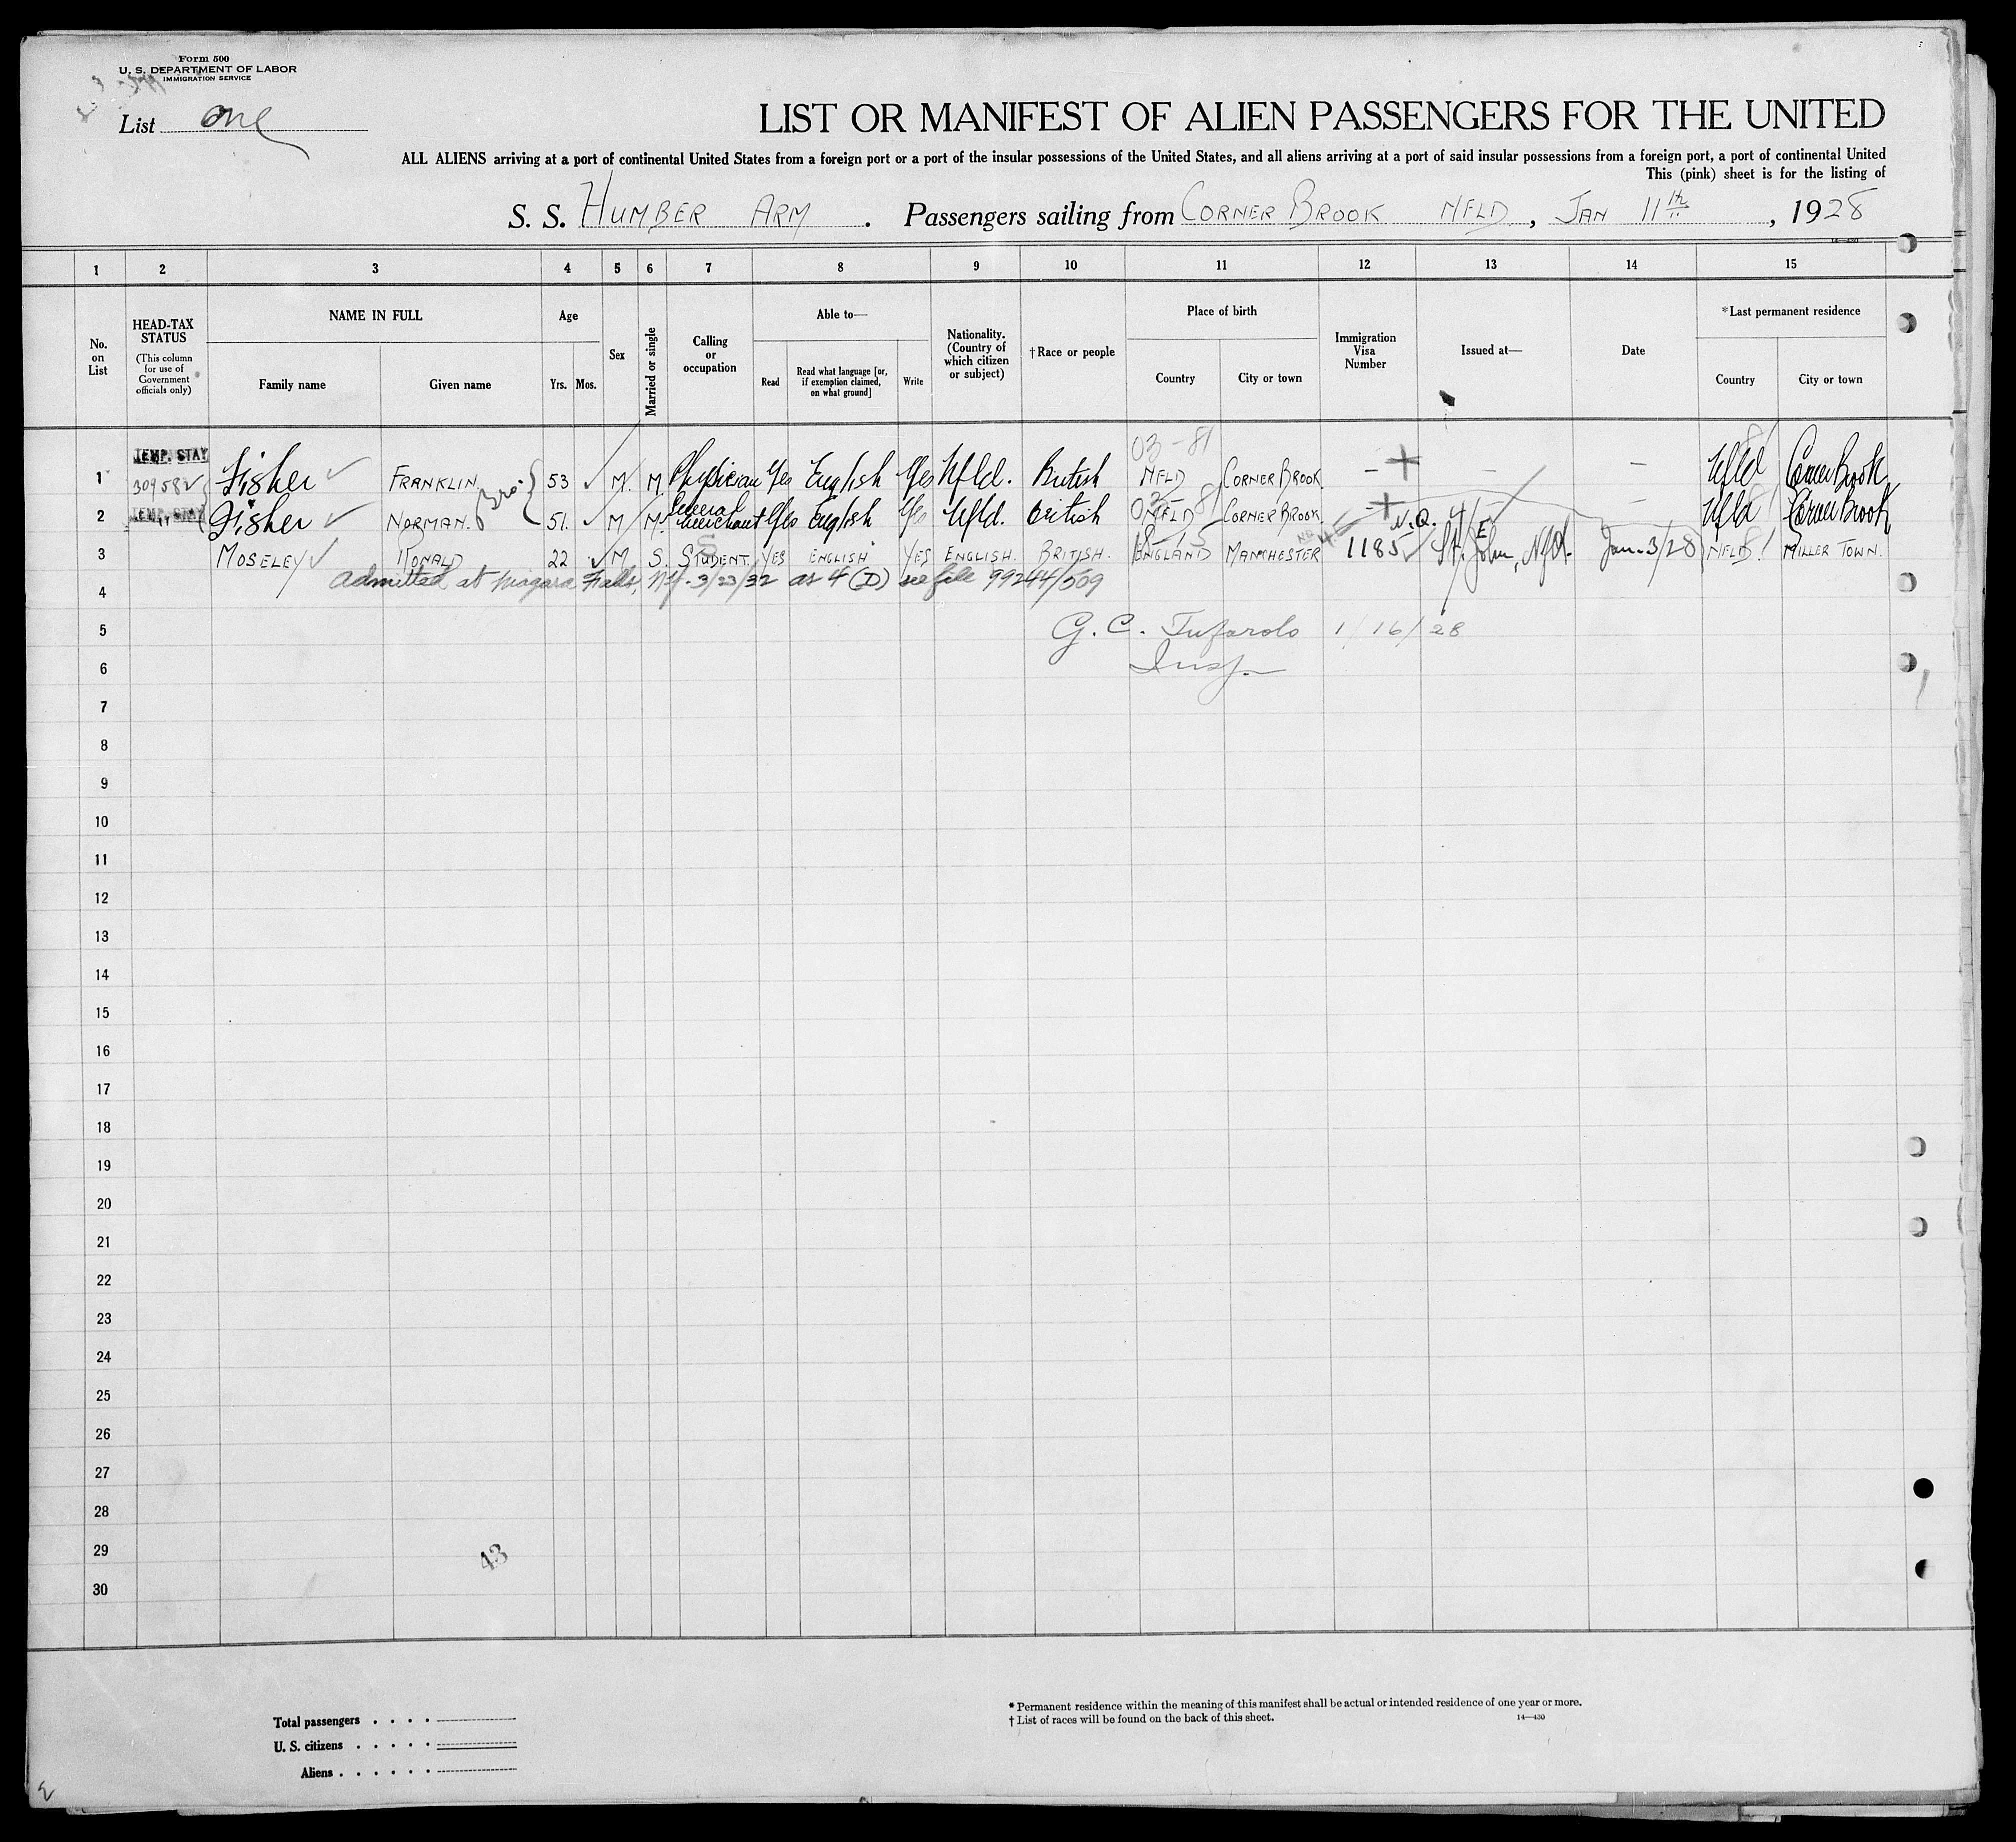 Form 500
U. S. DEPARTMENT OF LABOR
IMMIGRATION SERVICE
List one
LIST OR MANIFEST OF ALIEN PASSENGERS FOR THE UNITED
ALL ALIENS arriving at a port of continental United States from a foreign port or a port of the insular possessions of the United States, and all aliens arriving at a port of said insular possessions from a foreign port, a port of continental United
This (pink) sheet is for the listing of
S. S. HUMBER ARM. Passengers sailing from CORNER BROOK NFLD, JAN 11th, 1928
14—430
1 2 3 4 5 6 7 8 9 10 11 12 13 14 15
No. on List
HEAD-TAX STATUS
(This column for use of Government officials only)
NAME IN FULL
Family name
Given name
Age
Yrs. Mos.
Sex
Married or single
Calling or occupation
Able to—
Read
Read what language [or, if exemption claimed, on what ground]
Write
Nationality. (Country of which citizen or subject)
† Race or people
Place of birth
Country
City or town
Immigration Visa Number
Issued at—
Date
* Last permanent residence
Country
City or town
TEMP. STAY
03-81
1 30958 Fisher FRANKLIN. Bro. 53 M. M. Physician Yes English Yes Nfld. British NFLD CORNER BROOK. – + – – Nfld Corner Brook
2 TEMP. STAY Fisher NORMAN. 51. M M. General Merchant Yes English Yes Nfld. British NFLD CORNER BROOK. – + – Nfld Corner Brook
N.Q. 4/E
3 MOSELEY RONALD 22 M S. STUDENT. YES ENGLISH YES ENGLISH. BRITISH. ENGLAND MANCHESTER 1185 St. John, Nfld. Jan. 3/28 NFLD MILLER TOWN.
Admitted at Niagara Falls, NY. 3/23/32 as 4 (D) see file 99244/509
4
5 G. C. Tufarolo 1/16/28
6 Insp.
7
8
9
10
11
12
13
14
15
16
17
18
19
20
21
22
23
24
25
26
27
28
29
43
30
Total passengers
U. S. citizens
Aliens
* Permanent residence within the meaning of this manifest shall be actual or intended residence of one year or more.
† List of races will be found on the back of this sheet.
14—430